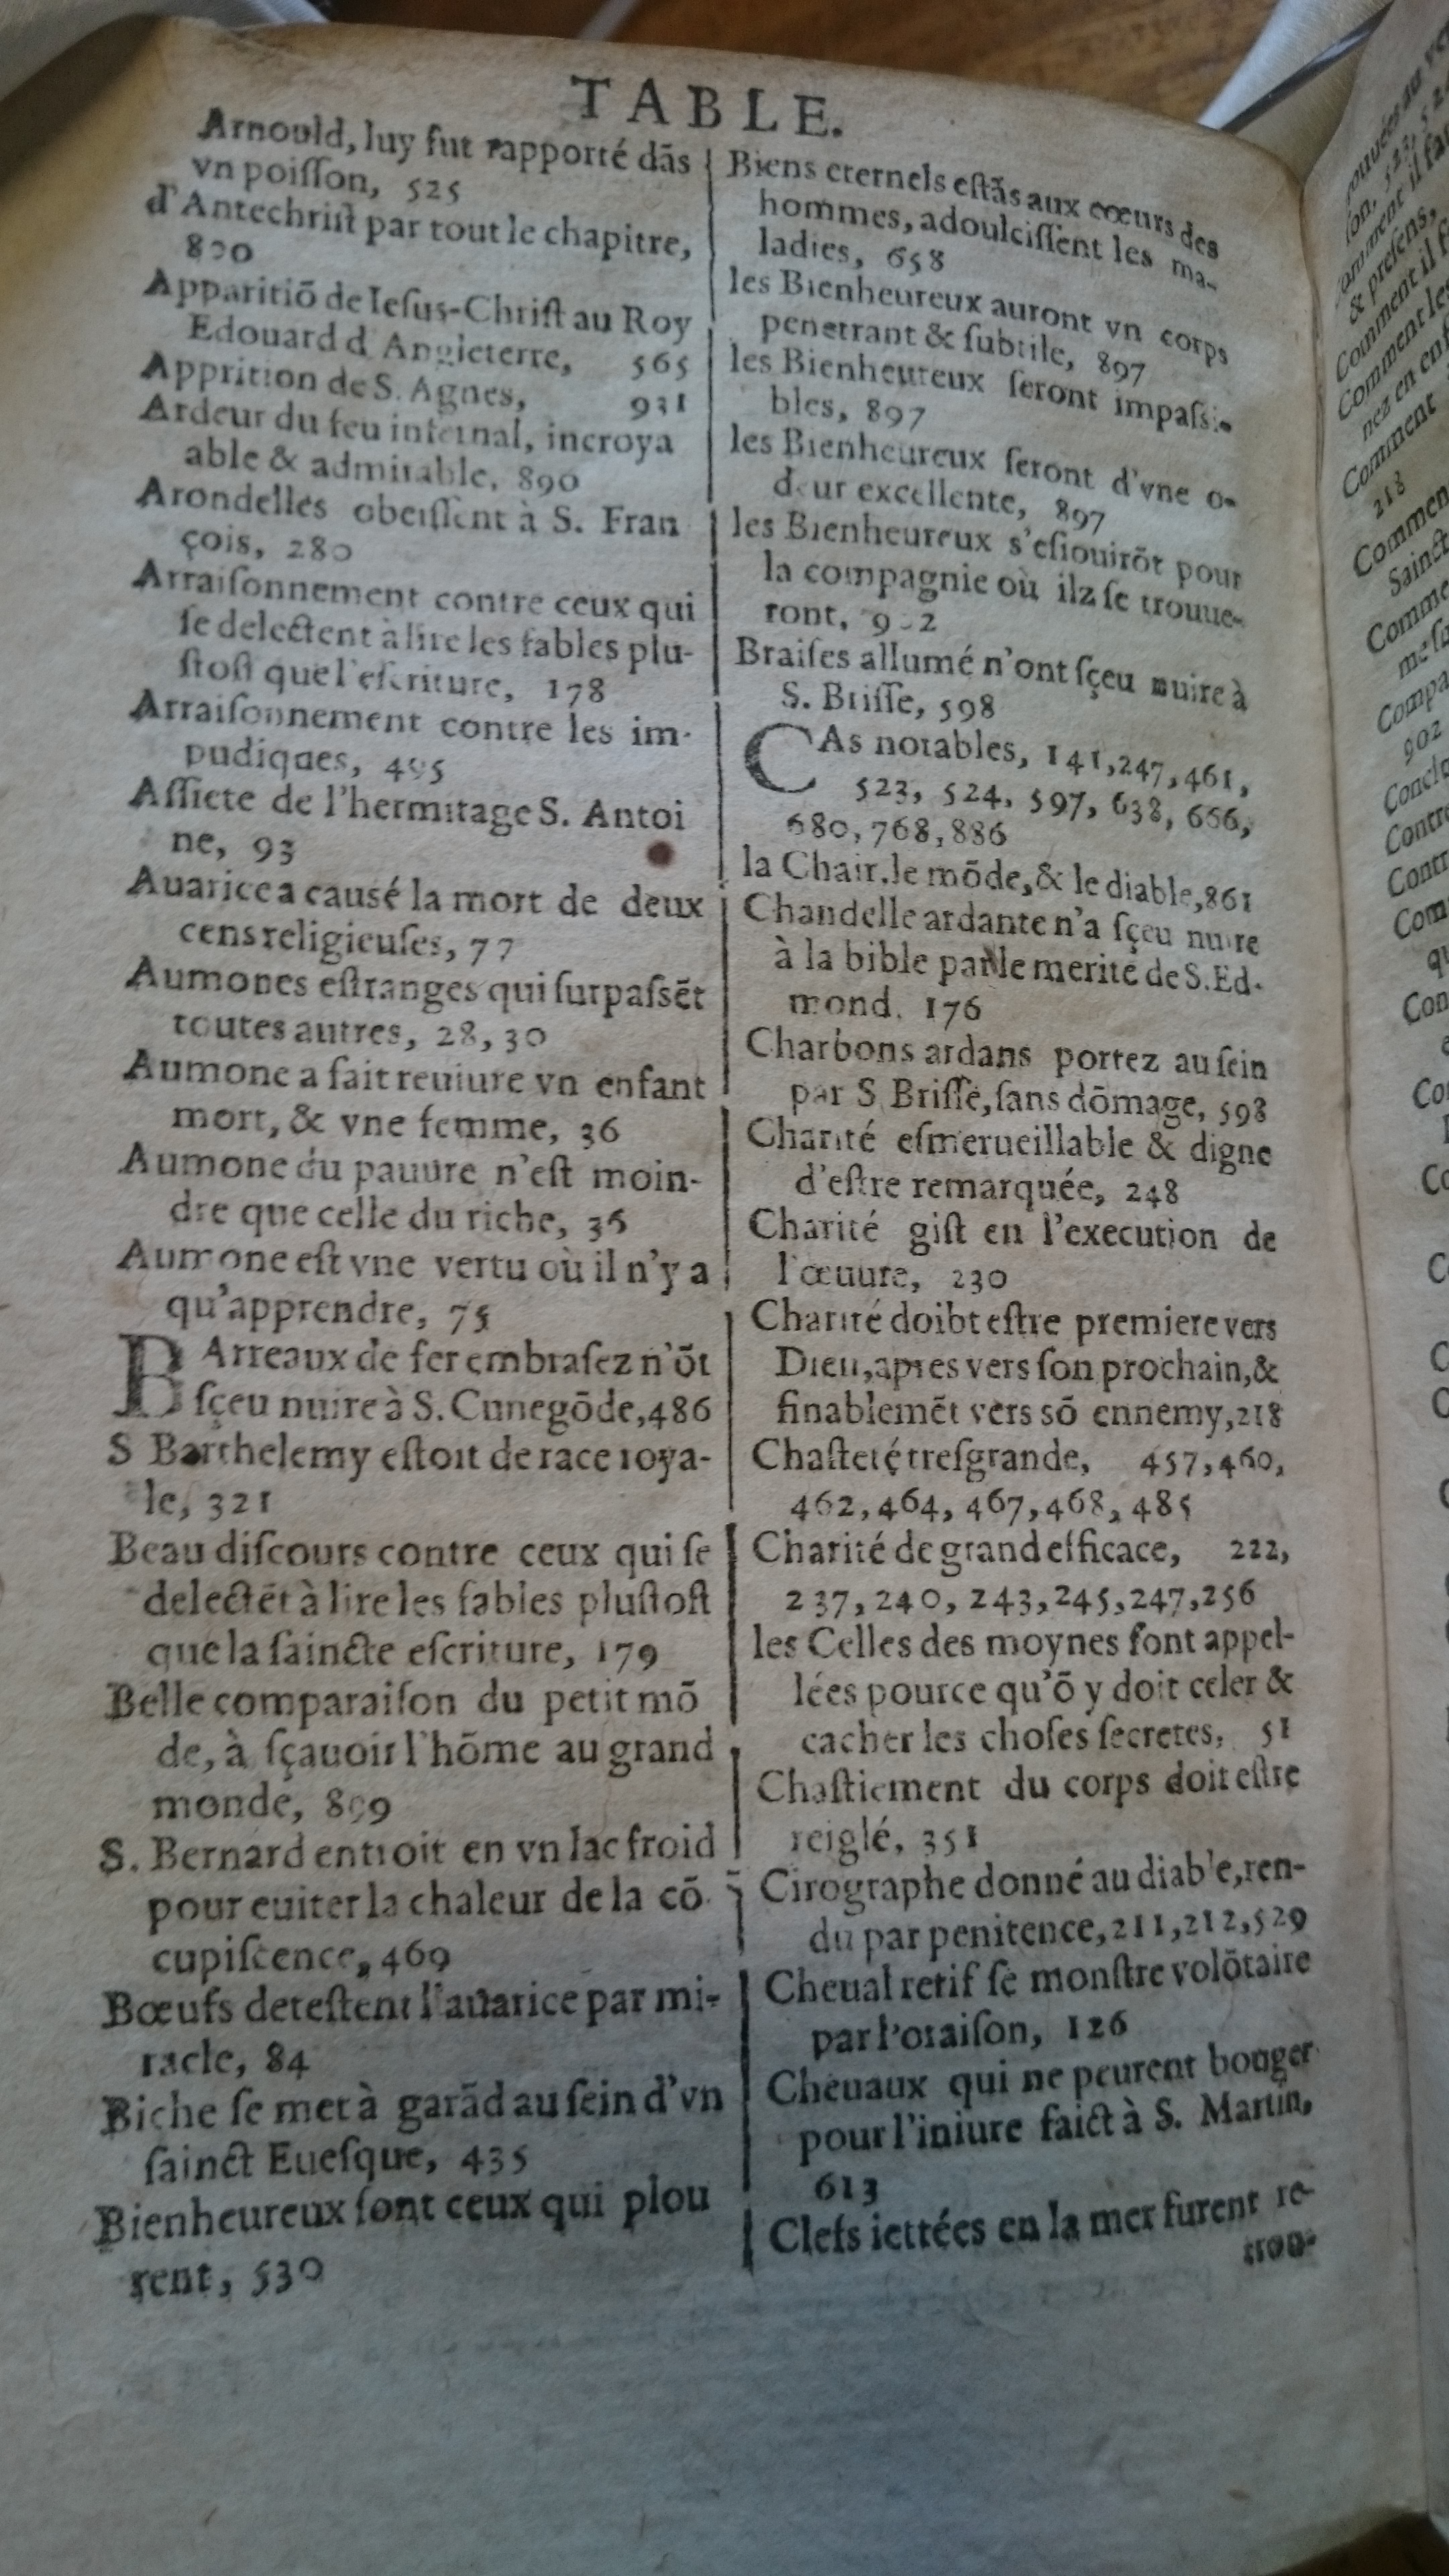 TABLE.
Arnould, luy fut rapporté dãs
vn poiſſon, 525
d'Antechriſt par tout le chapitre,
800
Apparitiõ de Ieſus-Chriſt au Roy
Edouard d'Angleterre, 565
Apprition de S. Agnes, 931
Ardeur du feu infernal, incroya
able & admirable, 890
Arondelles obeiſſent à S. Fran
çois, 280
Arraiſonnement contre ceux qui
ſe delectent à lire les fables plu-
ſtoſt que l'eſcriture, 178
Arraiſonnement contre les im-
pudiques, 495
Aſſiete de l'hermitage S. Antoi
ne, 93
Auarice a cauſé la mort de deux
cens religieuſes, 77
Aumones eſtranges qui ſurpaſsẽt
toutes autres, 28, 30
Aumone a fait reuiure vn enfant
mort, & vne femme, 36
Aumone du pauure n'eſt moin-
dre que celle du riche, 36
Aumone eſt vne vertu où il n'y a
qu'apprendre, 75
BArreaux de fer embraſez n'õt
ſçeu nuire à S. Cunegõde, 486
S Barthelemy eſtoit de race roya-
le, 321
Beau diſcours contre ceux qui ſe
delectẽt à lire les fables pluſtoſt
que la ſaincte eſcriture, 179
Belle comparaiſon du petit mõ
de, à ſçauoir l'hõme au grand
monde, 899
S. Bernard entroit en vn lac froid
pour euiter la chaleur de la cõ
cupiſcence, 469
Bœufs deteſtent l'auarice par mi-
racle, 84
Biche ſe met à garãd au ſein d'vn
ſainct Eueſque, 435
Bienheureux ſont ceux qui plou
rent, 530
Biens eternels eſtãs aux cœurs des
hommes, adoulciſſent les ma-
ladies, 658
les Bienheureux auront vn corps
penetrant & ſubtile, 897
les Bienheureux ſeront impaſsi-
bles, 897
les Bienheureux ſeront d'vne o-
deur excellente, 897
les Bienheureux s'eſiouirõt pour
la compagnie où ilz ſe trouue-
ront, 902
Braiſes allumé n'ont ſçeu nuire à
S. Briſſe, 598
CAs notables, 141, 247, 461,
523, 524, 597, 638, 666,
680, 768, 886
la Chair. le mõde, & le diable, 861
Chandelle ardante n'a ſçeu nuire
à la bible par le merite de S. Ed-
mond. 176
Charbons ardans portez au ſein
par S. Briſſe, ſans dõmage, 598
Charité eſmerueillable & digne
d'eſtre remarquée, 248
Charité giſt en l'execution de
l'œuure, 230
Charité doibt eſtre premiere vers
Dieu, apres vers ſon prochain, &
finablemẽt vers sõ ennemy, 218
Chaſteté treſgrande, 457, 460,
462, 464, 467, 468, 485
Charité de grand efficace, 222,
237, 240, 243, 245, 247, 256
les Celles des moynes ſont appel-
lées pource qu'õ y doit celer &
cacher les choſes ſecretes, 51
Chaſtiement du corps doit eſtre
reiglé, 351
Cirographe donné au diable, ren-
du par penitence, 211, 212, 529
Cheual retif ſe monſtre volõtaire
par l'oraiſon, 126
Cheuaux qui ne peurent bouger
pour l'iniure faict à S. Martin,
613
Clefs iettées en la mer furent re-
trou-
Comment
218
Sainct
902